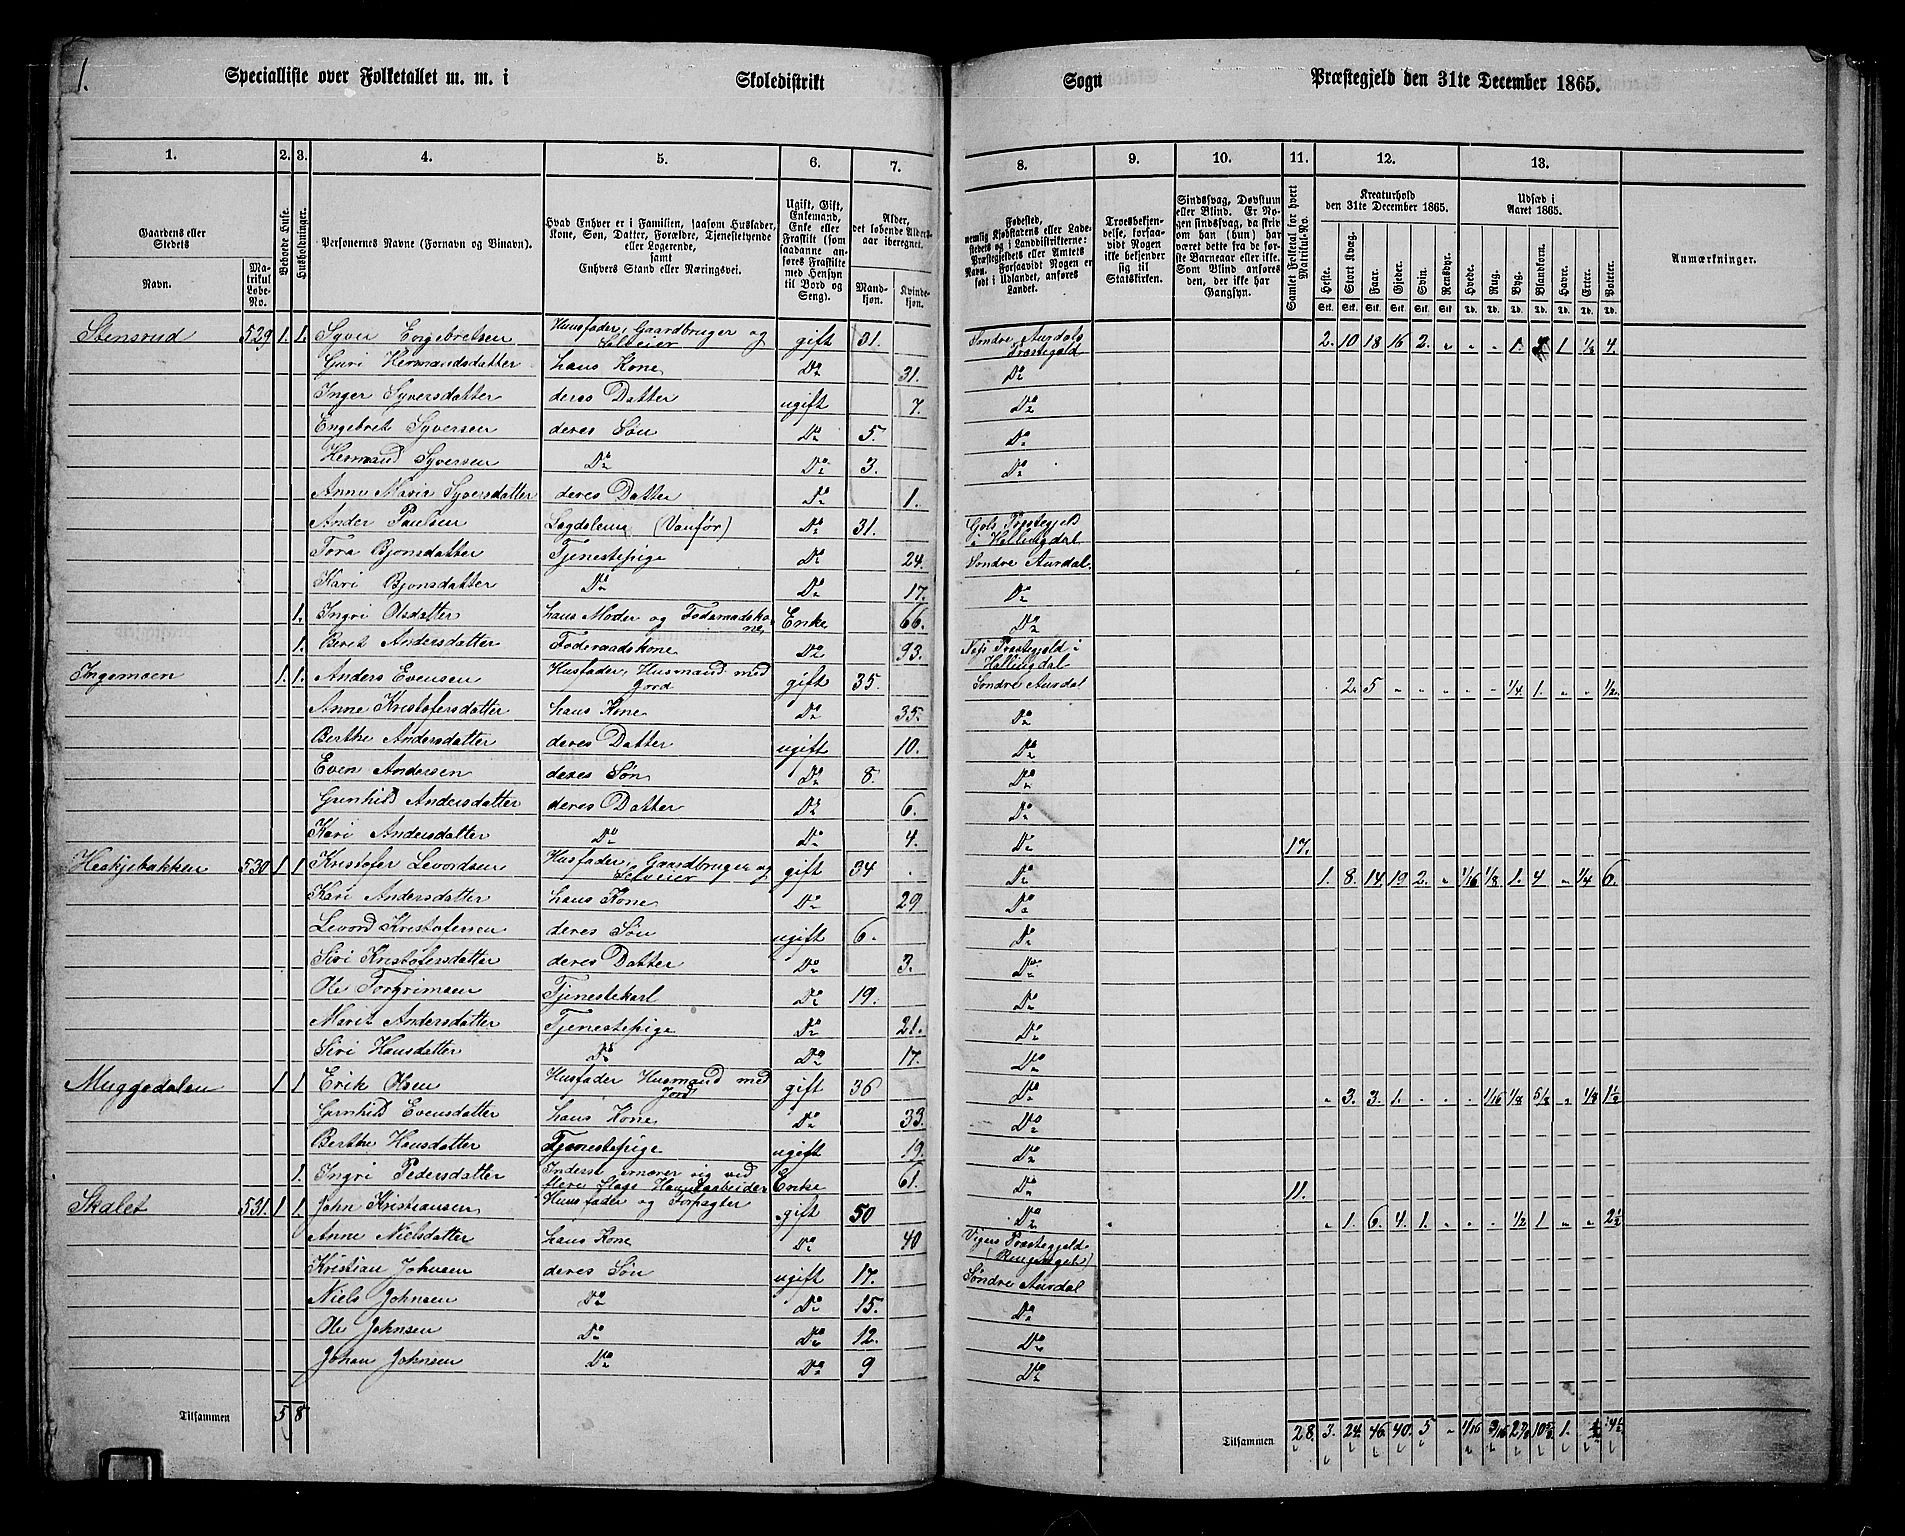 1.
Specialliste over Folketallet m. m. i Skoledistrikt Sogn Præstegjeld den 31te December 1865.
1. 2. 3. 4. 5. 6. 7. 8. 9. 10. 11. 12. 13.
Gaardens eller Stedets
Navn.
Matrikul Løbe-No.
Beboede Huse.
Husholdninger.
Personernes Navne (Fornavn og Binavn).
Hvad Enhver er i Familien, saasom Husfader, Kone, Søn, Datter, Forældre, Tjenestetyende eller Logerende, samt Enhvers Stand eller Næringsvei.
Ugift, Gift, Enkemand, Enke eller Fraskilt (som saadanne anføres Fraskilte med Hensyn til Bord og Seng).
Alder, det løbende Aldersaar iberegnet.
Mandkjøn. Kvindekjøn.
Fødested, nemlig Kjøbstadens eller Ladestedets og i Landdistrikterne: Præstegjeldets eller Amtets Navn. Forsaavidt Nogen er født i Udlandet, anføres Landet.
Troesbekjendelse, forsaavidt Nogen ikke bekjender sig til Statskirken.
Sindssvag, Døvstum eller Blind. Er Nogen sindssvag, da skrives om han (hun) har været dette fra de første Barneaar eller ikke. Som Blind anføres den, der ikke har Gangsyn.
Samlet Folketal for hvert Matrikul-No.
Kreaturhold den 31te December 1865.
Heste. Stort Kvæg. Faar. Gjeder. Svin. Rensdyr.
Stk. Stk. Stk. Stk. Stk. Stk.
Udsæd i Aaret 1865.
Hvede. Rug. Byg. Blandkorn. Havre. Erter. Poteter.
Td. Td. Td. Td. Td. Td. Td.
Anmærkninger.
Stensrud 529 1. 1. Syver Engebretsen Huusfader, Gaardbruger og Selveier gift 31. Søndre Aurdals Præstegjeld 2. 10 18 16 2. 1. 1 1/8 4.
Guri Hermandsdatter hans Kone Do 31. Do
Inger Syversdatter deres Datter ugift 7. Do
Engebret Syversen deres Søn Do 5. Do
Hermand Syversen Do Do 3. Do
Anne Marie Syversdatter deres Datter Do 1.
Ander Paulsen Lægdslem (Vanfør) Do 31. Gols Præstegjeld i Hallingdal
Tora Bjonsdatter Tjenestepige Do 24. Søndre Aurdal.
Kari Bjonsdatter Do Do 17. Do
1. Ingri Olsdatter hans Moder og Føderaadskone Enke 66. Do
1. Berit Andersdatter Føderaadskone Do 93. Næs Præstegjeld i Hallingdal
Ingemoen 1. 1. Anders Evensen Husfader, Husmand med Jord gift 35. Søndre Aurdal 2. 5 1/4 1. 1/2.
Anne Kristofersdatter hans Kone Do 35. Do
Berthe Andersdatter deres Datter ugift 10. Do
Even Andersen deres Søn Do 8. Do
Gunhild Andersdatter deres Datter Do 6. Do
Kari Andersdatter Do Do 4. Do 17.
Heskjebakken 530 1 1 Kristofer Levordsen Husfader, Gaardbruger og Selveier gift 34 Do 1. 8. 14. 19 2. 1/16 1/8 1. 4 1/4 6.
Kari Andersdatter hans Kone Do 29 Do
Levord Kristofersen deres Søn ugift 6. Do
Siri Kristofersdatter deres Datter Do 3. Do
Ole Torgrimsen Tjenestekarl Do 19. Do
Marit Andersdatter Tjenestepige Do 21. Do
Siri Hansdatter Do Do 17. Do
Muggedalen 1 1 Erik Olsen Husfader Husmand med Jord gift 36 Do 3. 3. 1. 1/16 1/8 5/8 1/8 1 1/2
Gunhild Evensdatter hans Kone Do 33. Do
Berthe Hansdatter Tjenestepige ugift 19. Do
1. Ingri Pedersdatter Inderst ernærer sig ved flere Slags Haandarbeider Enke 61. Do 11.
Skalet 531. 1 1. John Kristiansen Huusfader og Forpagter gift 50 Do 1. 6. 4. 1. 1/2 1 2 1/2
Anne Nielsdatter hans Kone Do 40 Vigers Præstegjeld (Ringeriget)
Kristian Johnsen deres Søn ugift 17. Søndre Aurdal
Niels Johnsen Do Do 15. Do
Ole Johnsen Do Do 12. Do
Johan Johnsen Do Do 9 Do
Tilsammen 5 8
Tilsammen 28. 3. 24. 46. 40. 5 1/16 3/16 1.